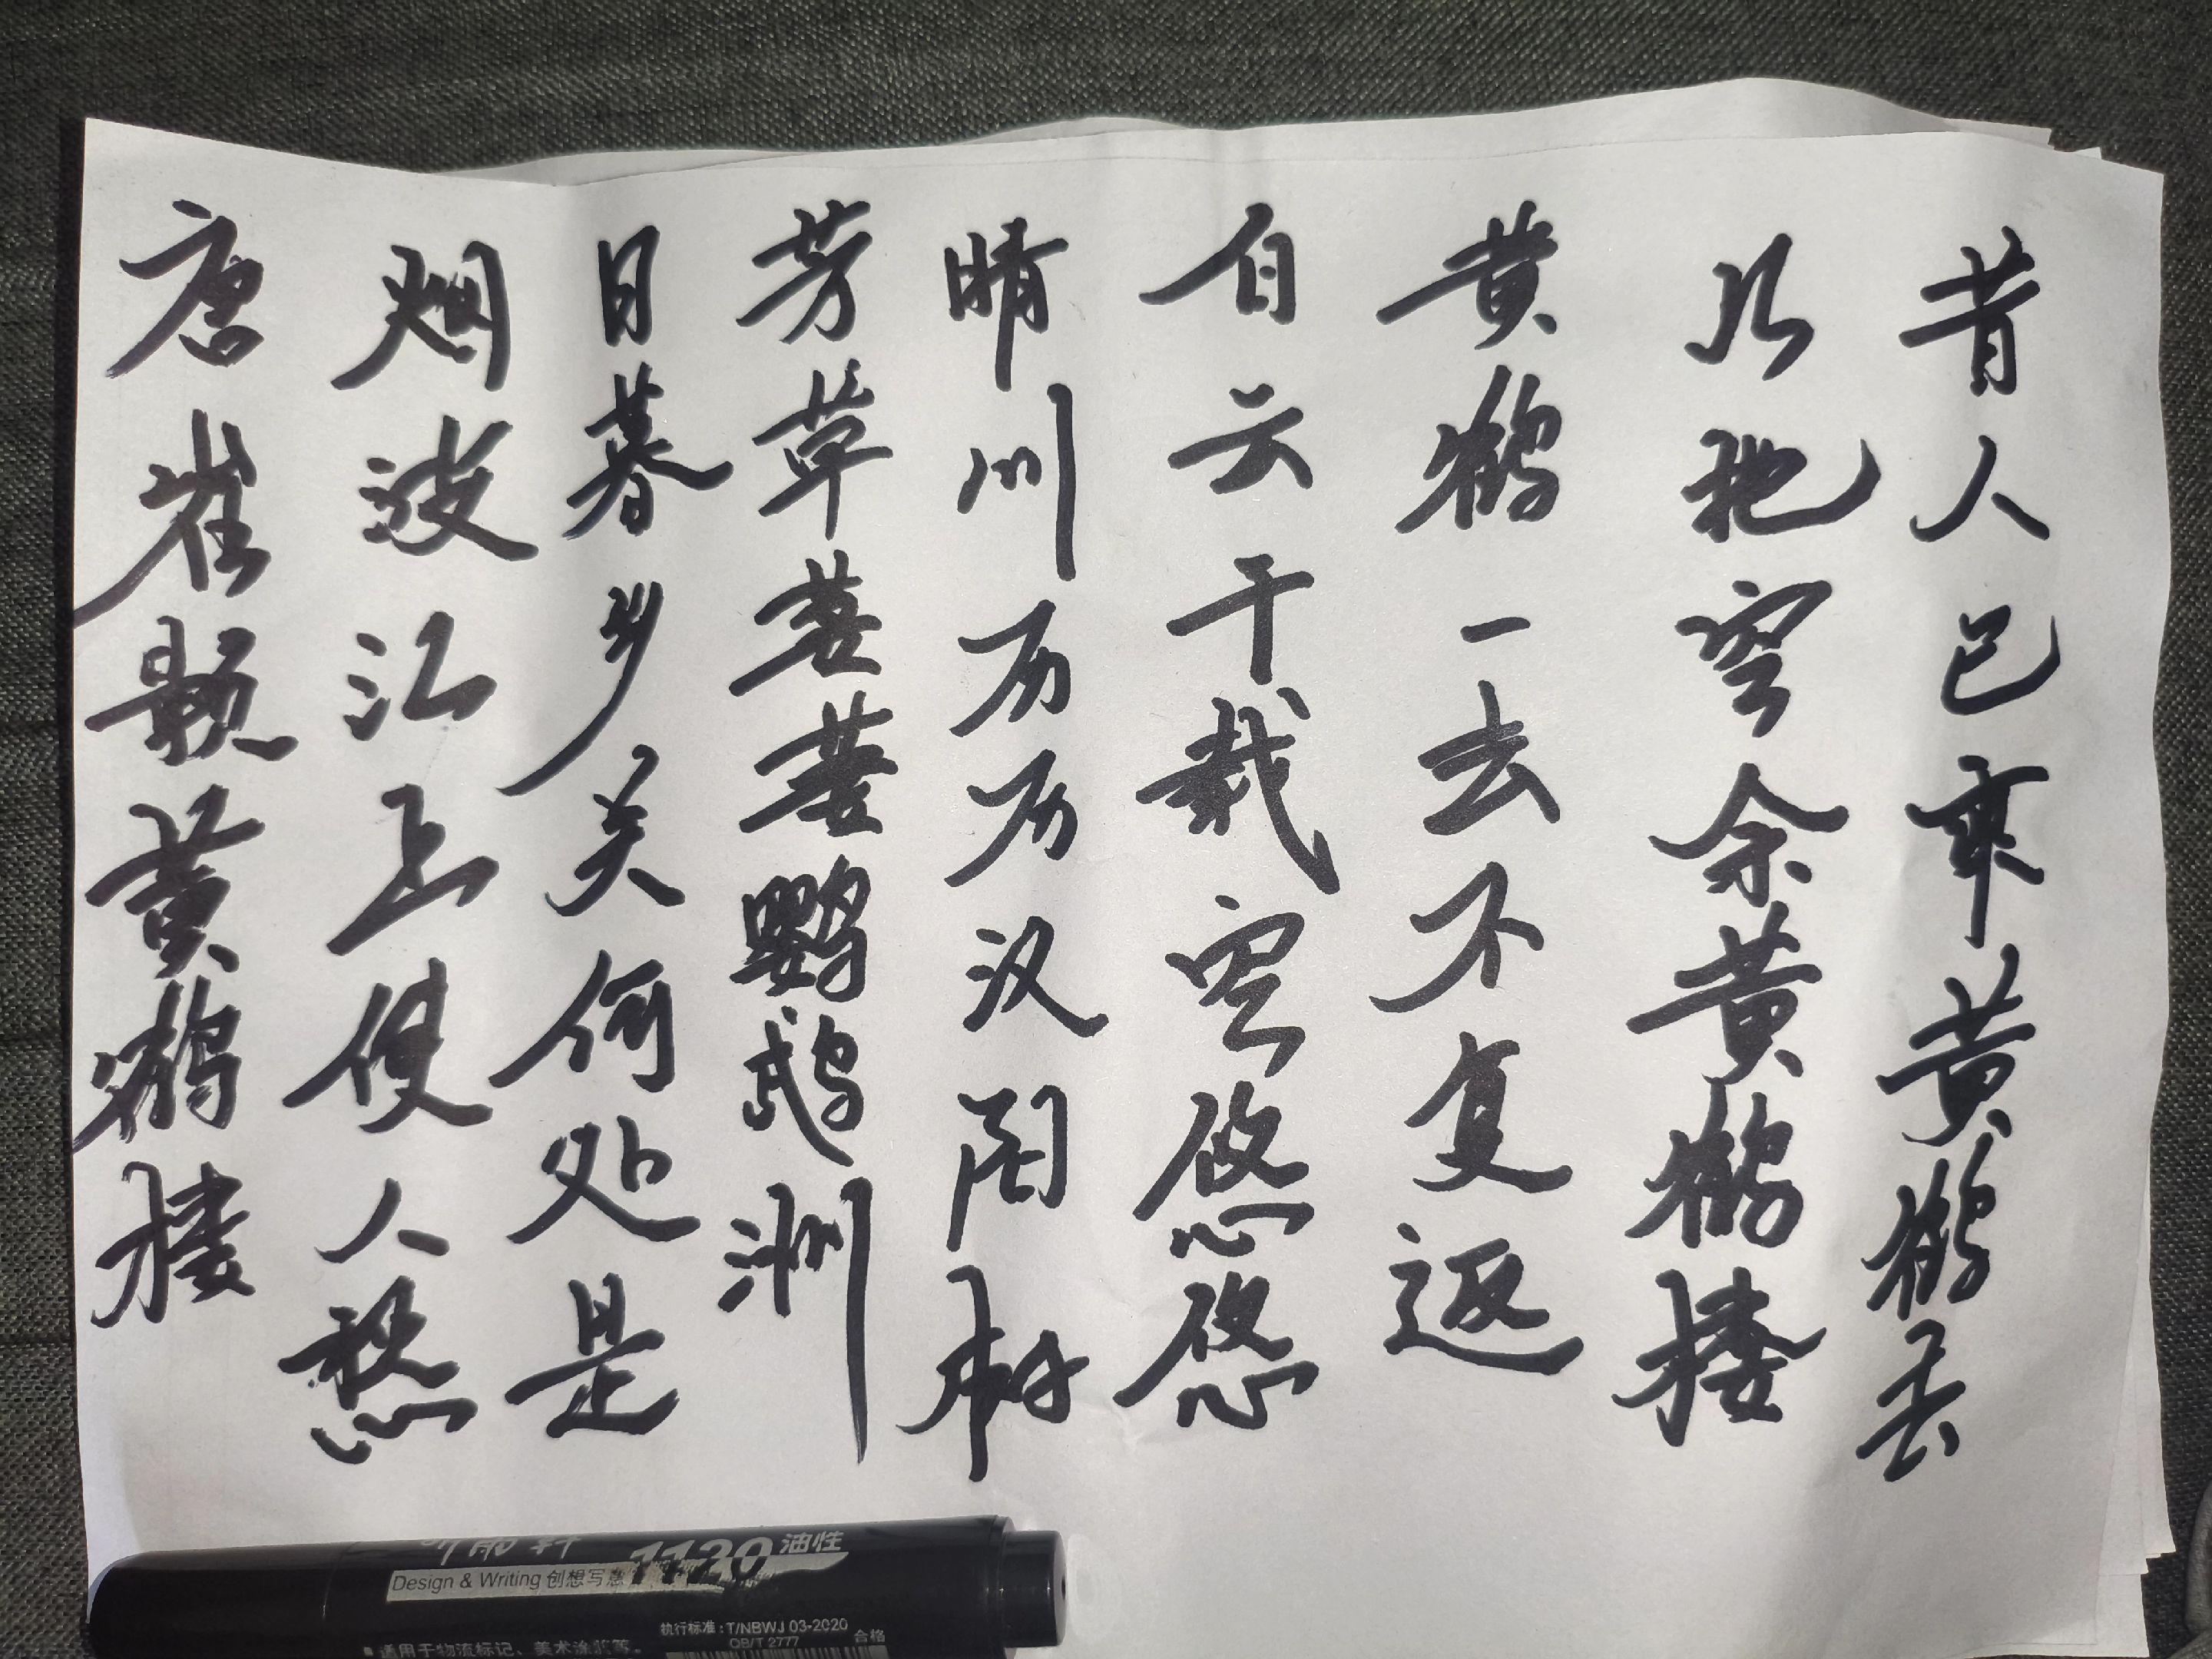 昔人已乘黄鹤去
此地空余黄鹤楼
黄鹤一去不复返
白云千载空悠悠
晴川历历汉阳树
芳草萋萋鹦鹉洲
日暮乡关何处是
烟波江上使人愁
唐崔颢黄鹤楼
1120 油性
Design & Writing 创想写意
执行标准：T/NBWJ 03-2020
QB/T 2777 合格
■ 适用于物流标记、美术涂鸦等。